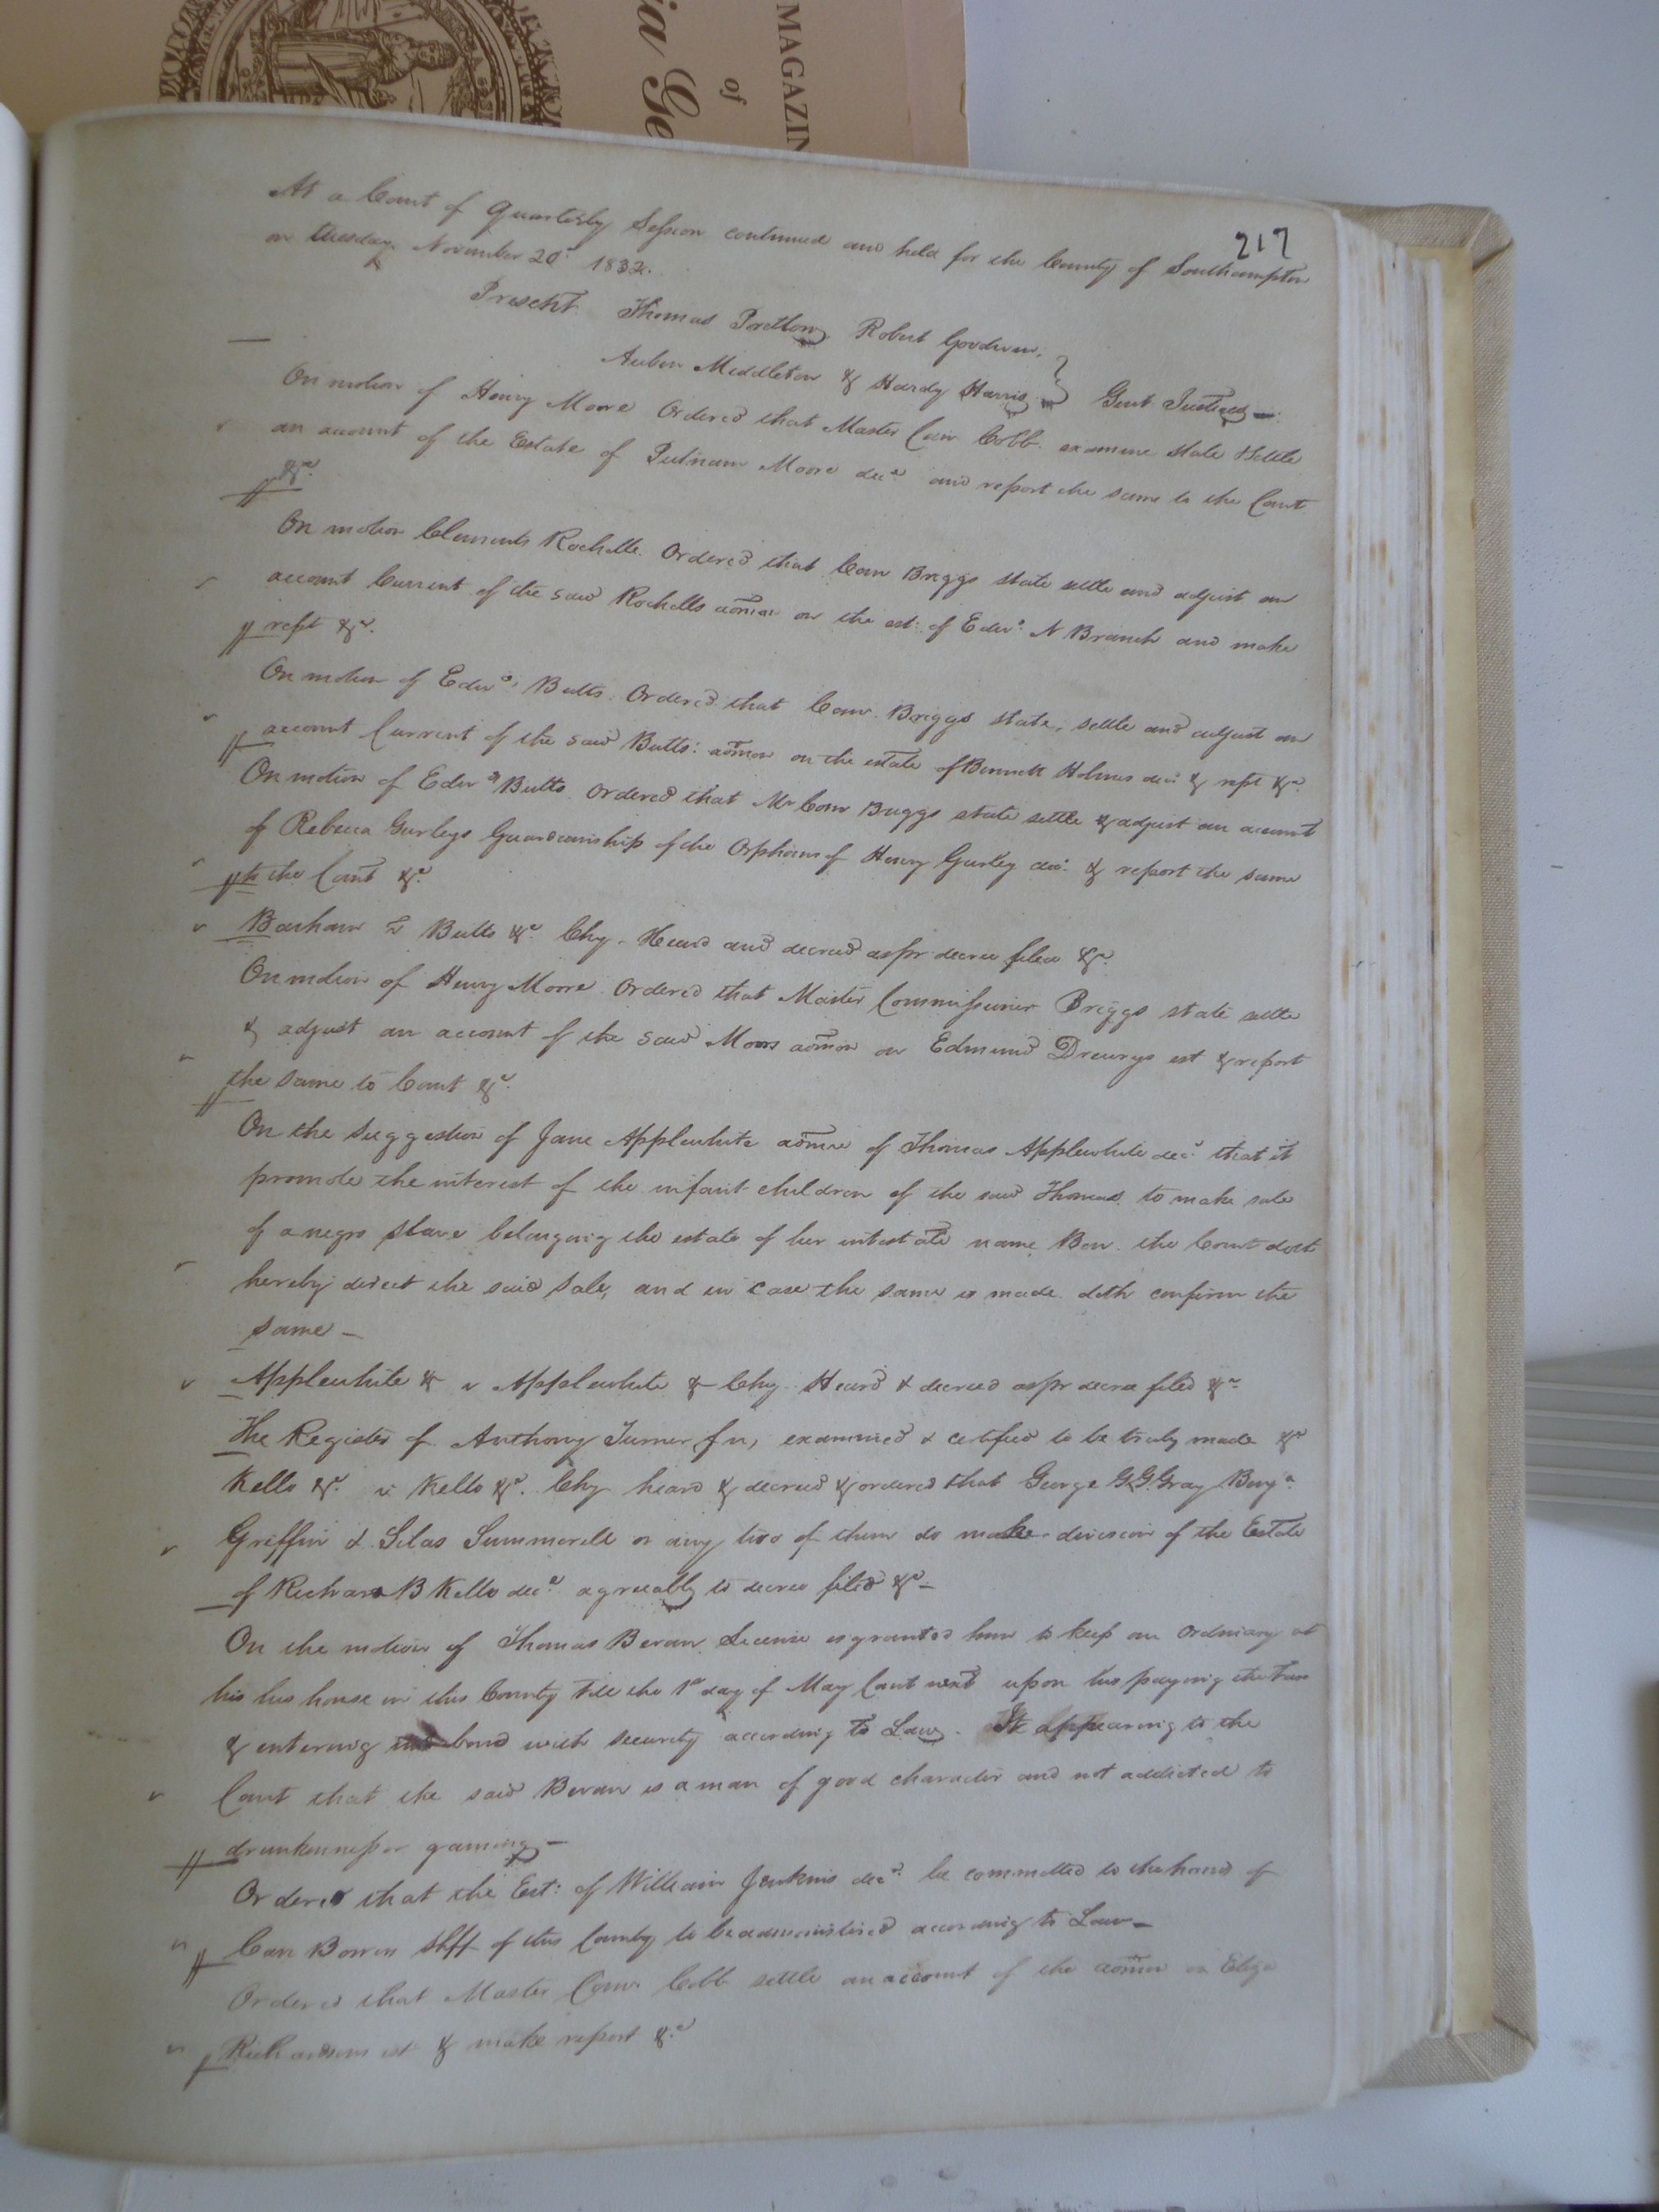 MAGAZIN
of
ia Ge
217
At a Court of Quarterly Session continued and held for the County of Southampton
on Tuesday November 20th 1832.
Present Thomas Pretlow, Robert Goodwin,
Auben Middleton & Hardy Harris } Gent Justices
On motion of Henry Moore Ordered that Master Com Cobb examine State & settle
an account of the Estate of Putnam Moore decd and report the same to the Court
&c.
On motion Clements Rochelle. Ordered that Com Briggs state settle and adjust an
account Current of the said Rochells admon on the est: of Edwd. N Branch and make
rept &c.
On motion of Edwd. Butts. Ordered that Com. Briggs state, settle and adjust an
account Current of the said Butts: admon on the estate of Bennett Holmes decd & rept &c.
On motion of Edwd Butts Ordered that Mr Com Briggs state settle & adjust an account
of Rebecca Gurleys Guardianship of the Orphans of Henry Gurley decd. & report the same
to the Court &c.
Barham v Butts &c. Chy. Heard and decreed as pr decree filed &c.
On motion of Henry Moore Ordered that Master Commissioner Briggs state settle
& adjust an account of the said Moors admon on Edmund Drewrys est & report
the same to Court &c.
On the suggestion of Jane Applewhite admx of Thomas Applewhite decd that it
promote the interest of the infant children of the said Thomas to make sale
of a negro slave belonging the estate of her intestate name Ben. the Court doth
hereby direct the said sale, and in case the same is made doth confirm the
same —
Applewhite & v Applewhite & Chy. Heard & decreed as pr decree filed &c
The Register of Anthony Turner fn, examined & certified to be truly made &c
Kello &c. v Kello &c. Chy heard & decreed & ordered that George G.G. Gray Benja
Griffin & Silas Summerell or any two of them do make division of the Estate
of Richard B Kello decd. agreeably to decree filed &c —
On the motion of Thomas Bevan License is granted him to keep an Ordinary at
his his house in this County till the 1st day of May Court next upon his paying the Tax
& entering into bond with security according to Law. It appearing to the
Court that the said Bevan is a man of good character and not addicted to
drunkenness or gaming —
Ordered that the Est: of William Jenkins decd. be committed to the hands of
Carr Bowers Shff of this County to be administered according to Law —
Ordered that Master Com Cobb settle an account of the admon on Eliza
Richardsons est & make report &c